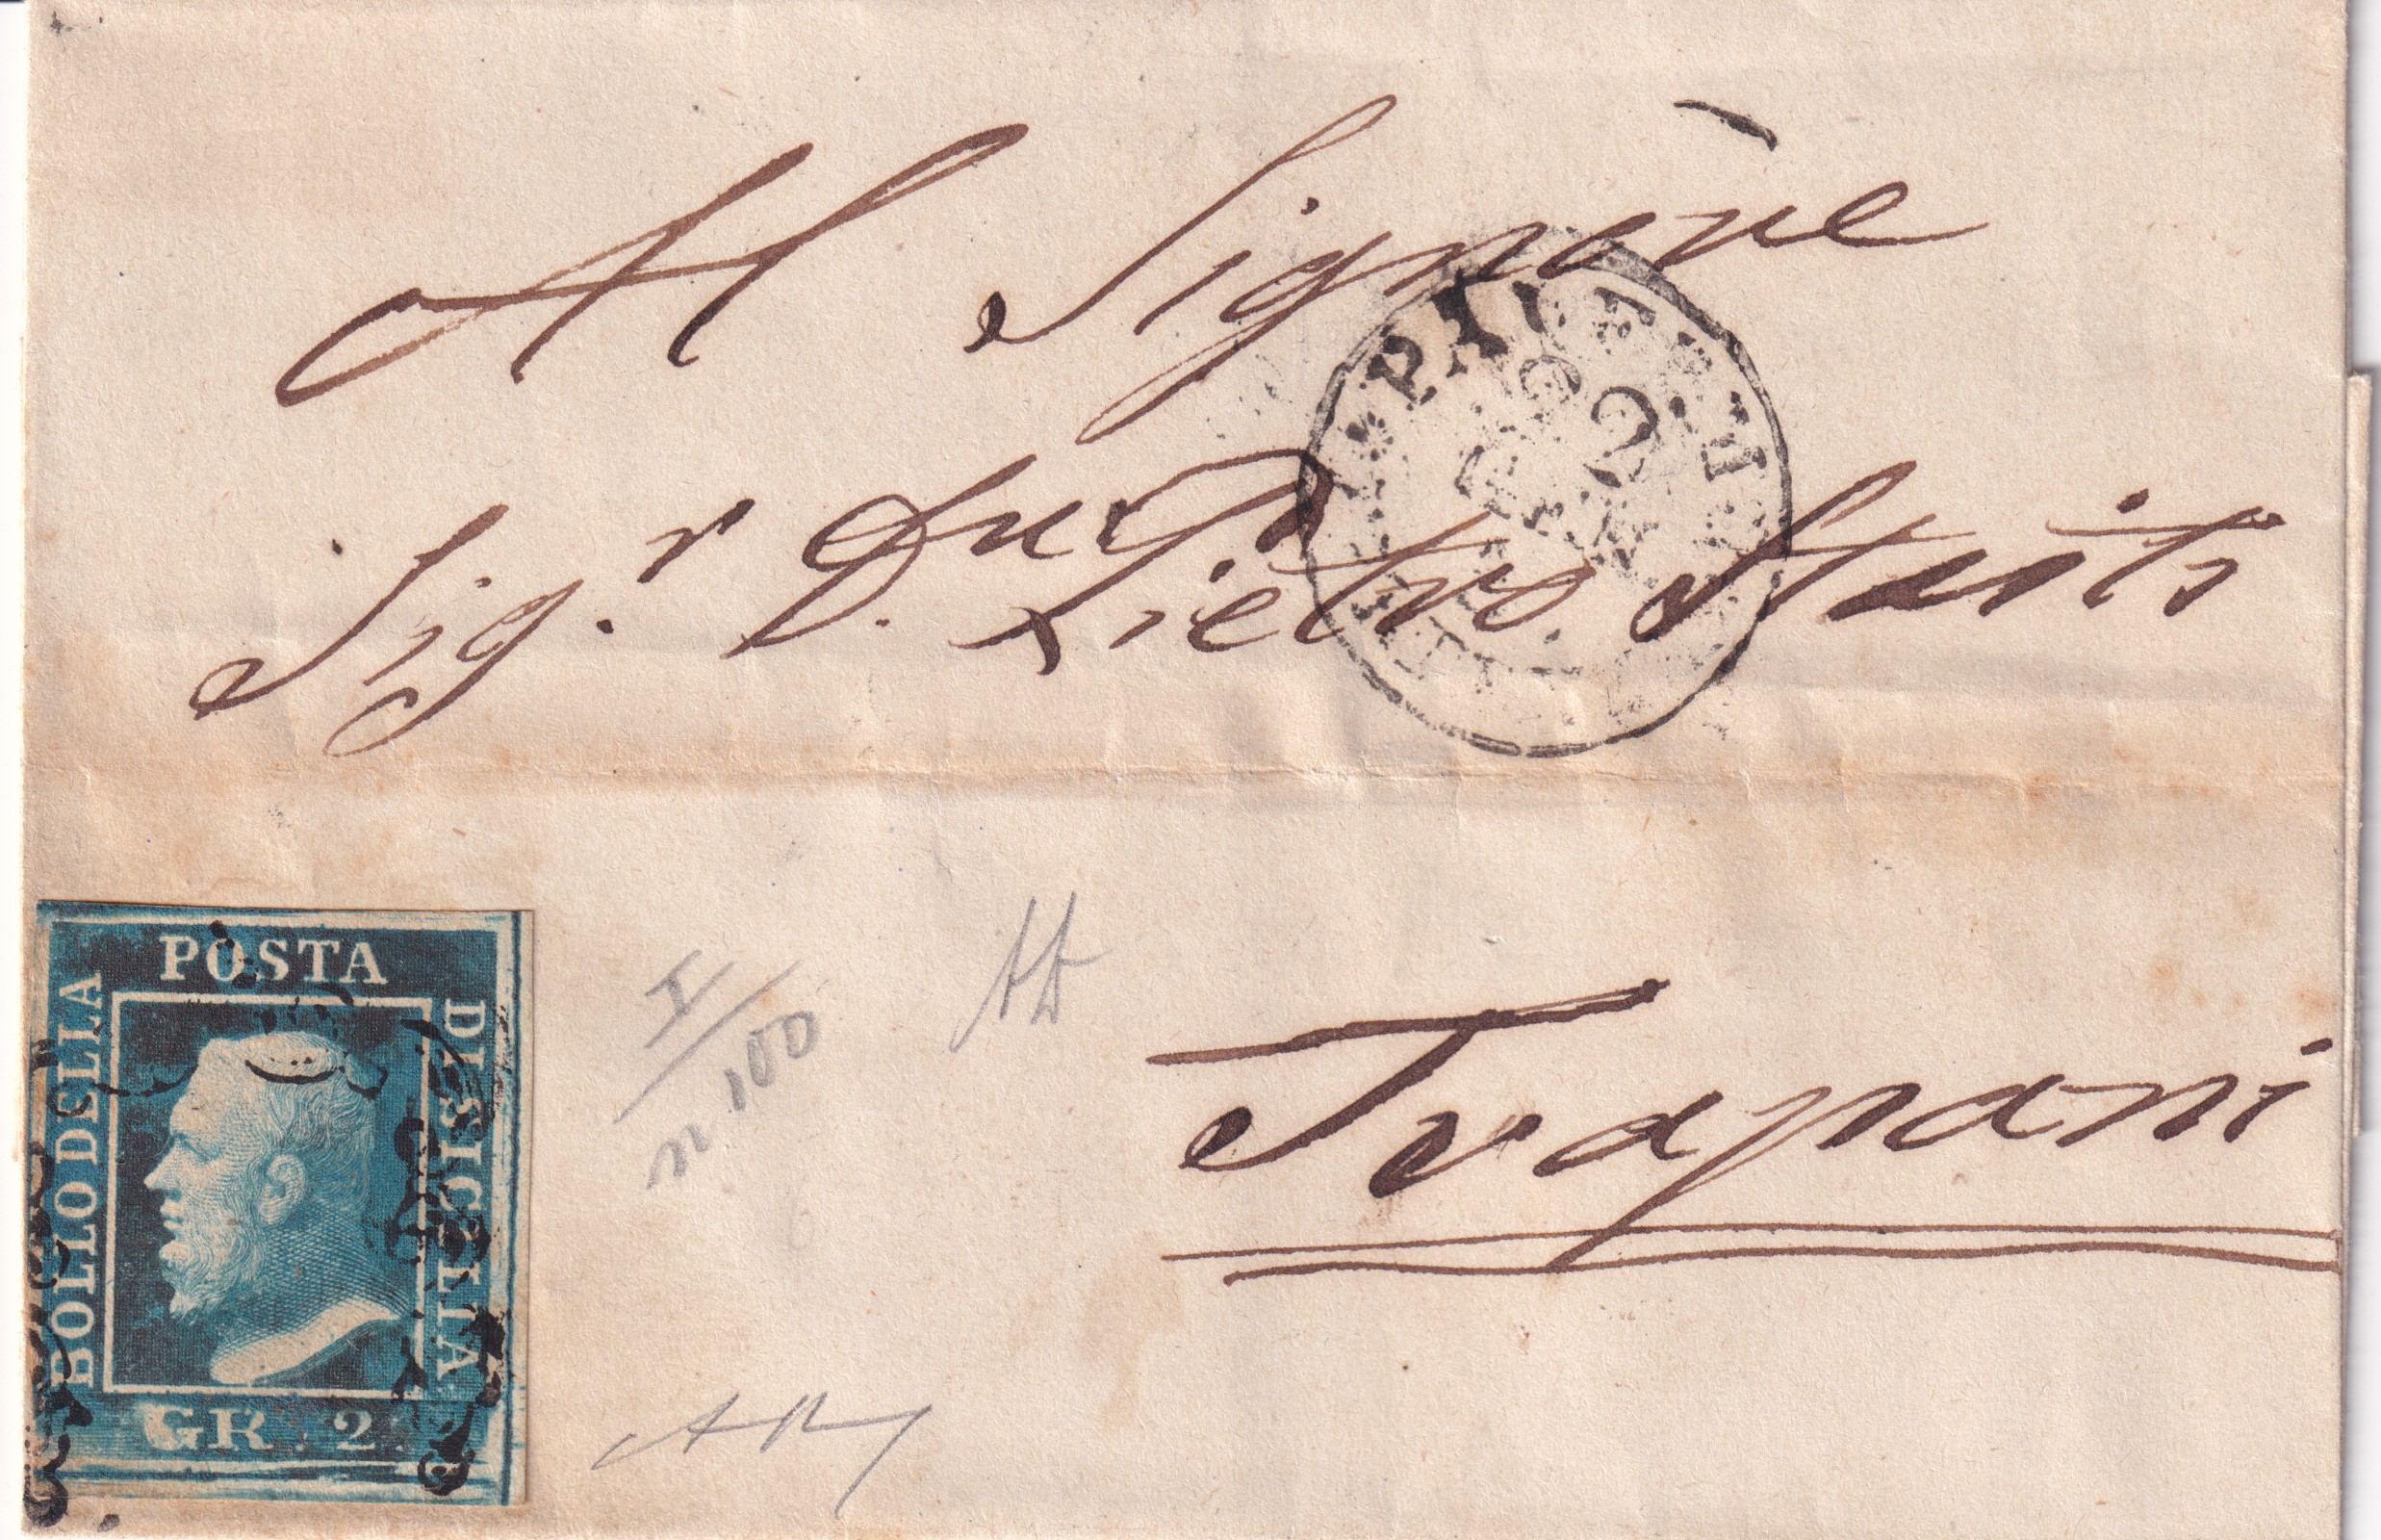 Al Signore
Sig.r D. Pietro Staiti
Trapani
2
POSTA
BOLLO DELLA
DI SICILIA
GR. 2
I
n. 100